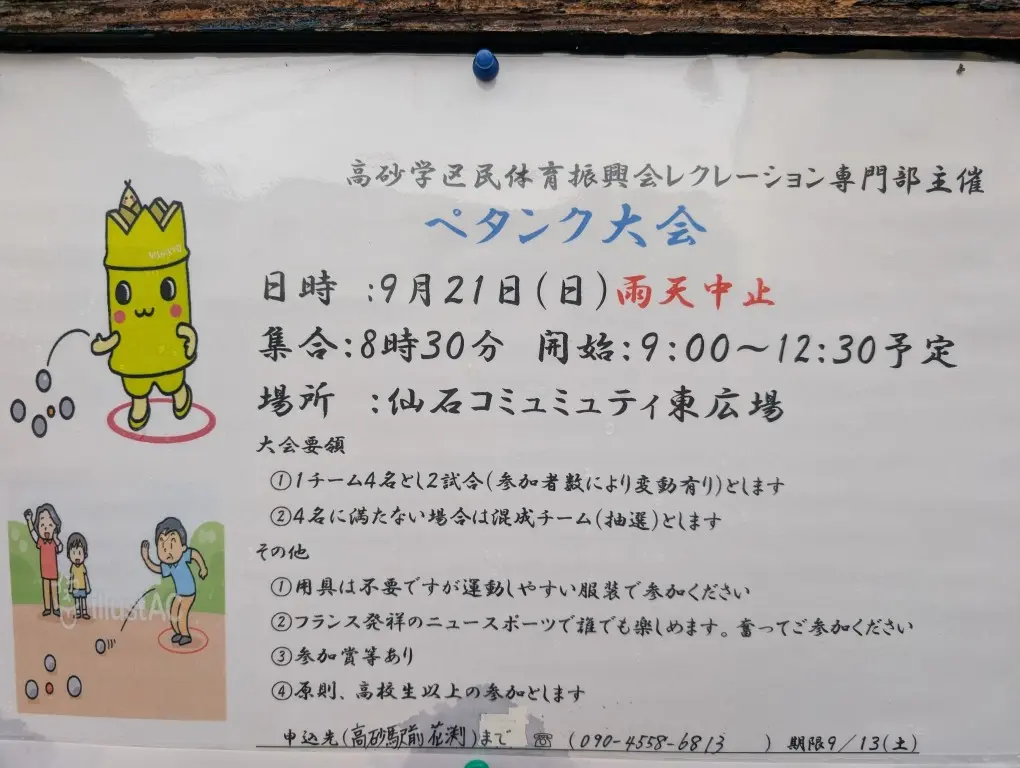 高砂学区民体育振興会レクレーション専門部主催
ペタンク大会
日時 :9月21日(日)雨天中止
集合:8時30分 開始:9:00～12:30予定
場所 :仙石コミュミュティ東広場
大会要領
①1チーム4名とし2試合(参加者数により変動有り)とします
②4名に満たない場合は混成チーム(抽選)とします
その他
①用具は不要ですが運動しやすい服装で参加ください
②フランス発祥のニュースポーツで誰でも楽しめます。奮ってご参加ください
③参加賞等あり
④原則、高校生以上の参加とします
申込先(高砂駅前 花渕)まで ☎ (090-4558-6813 ) 期限9/13(土)
illustAC